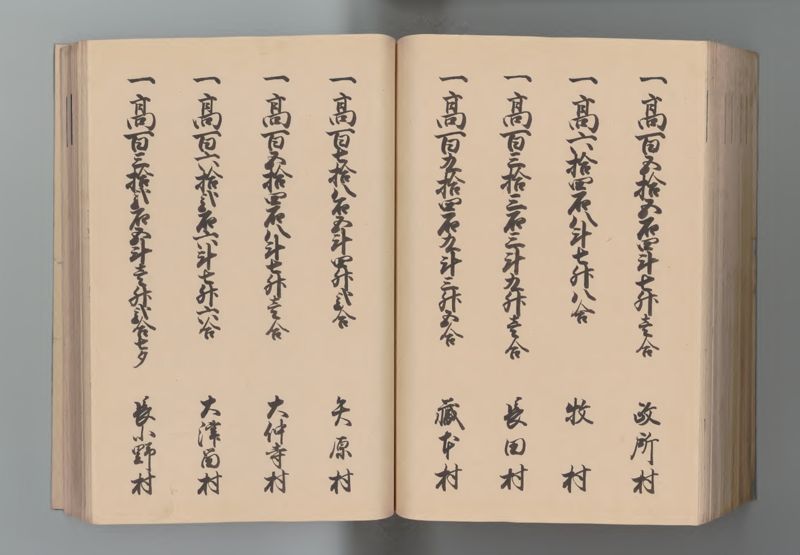 一高百五拾五石四斗七升壱合 政所村
一高六拾四石八斗七升八合 牧村
一高百三拾三石三斗九升壱合 長田村
一高百九拾四石九斗三升五合 蔵本村
一高百七拾八石五斗四升弐合 矢原村
一高百五拾四石八斗七升壱合 大仲寺村
一高百六拾弐石六斗七升六合 大津留村
一高百三拾弐石五斗壱升弐合七夕 長小野村